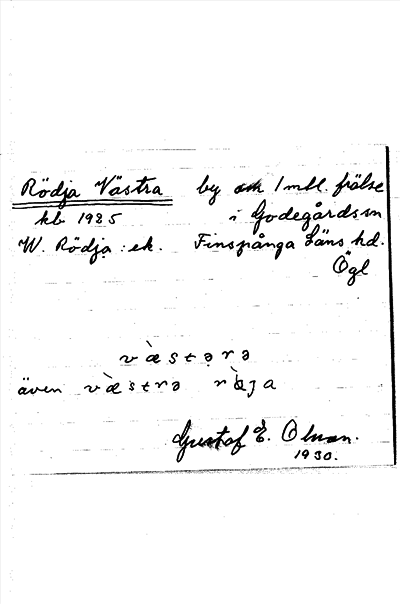 Rödja Västra by och 1 mtl. frälse
kb 1925 i Godegårds sn
W. Rödja : ek. Finspånga Läns hd.
Ögl
v æ̀ s t ə r ə
även v æ̀ s t r ə
Gustaf E. Olman.
1930.